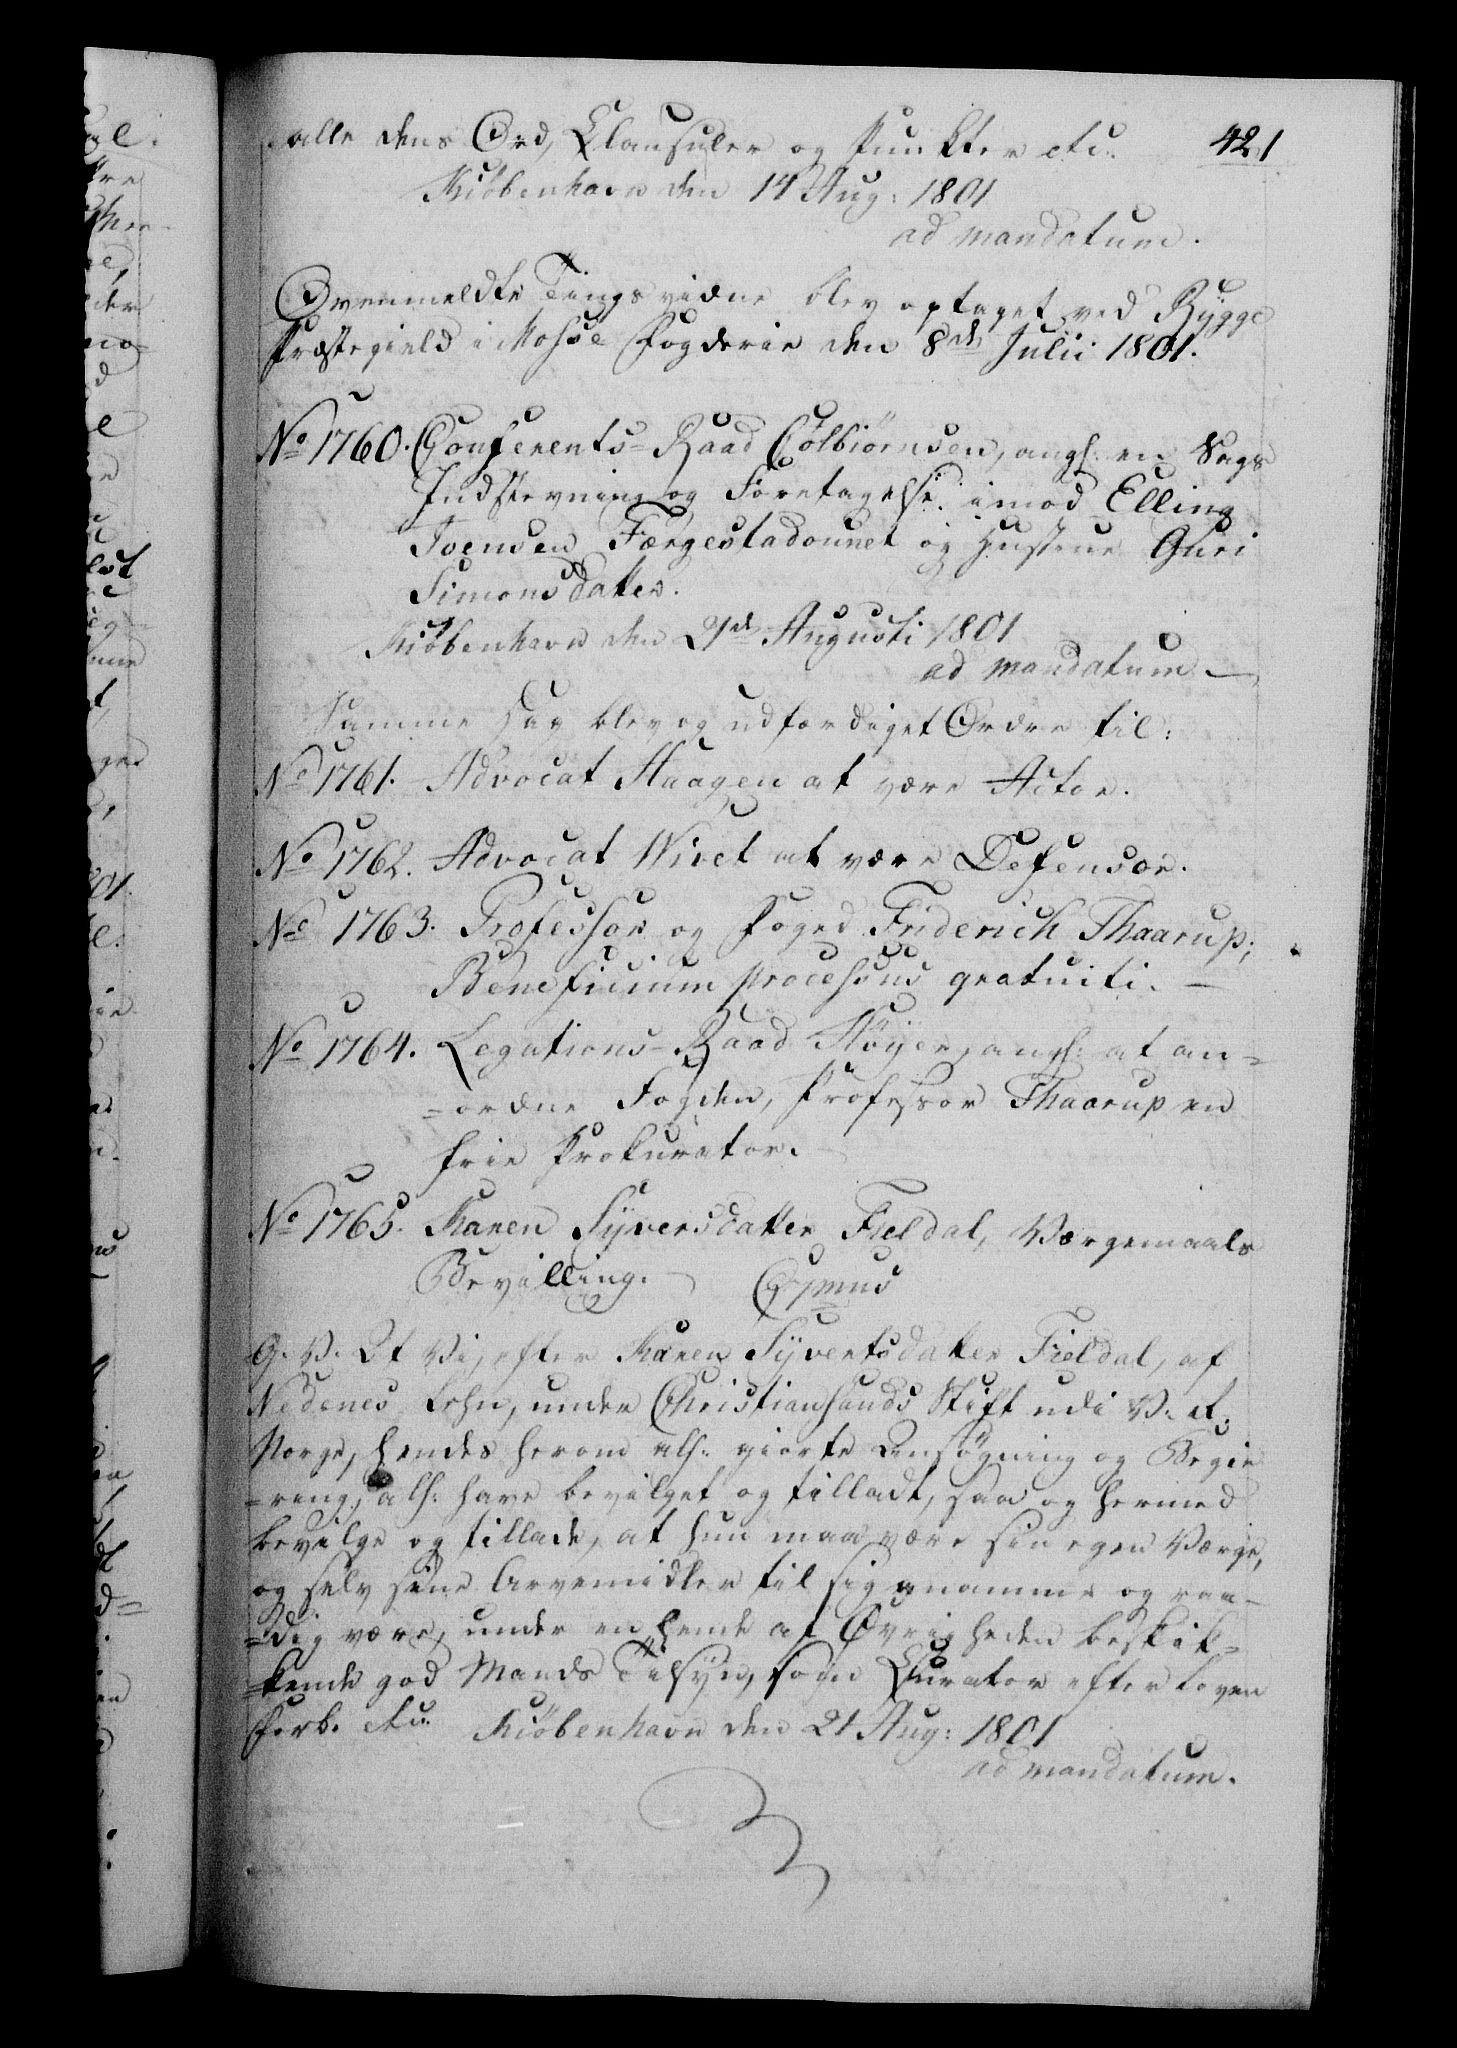 alle dens Ord, Clausuler og Punkter etc. 421
Kiöbenhavn den 14 Aug: 1801
ad mandatum.
Ovenmeldte Tingsvidne blev optaget ved Rygge
Præstegield i Mosse Fogderie den 8de Julii 1801.
No 1760. Conferents-Raad Colbiörnsen, angl: en Sags
Indstevning og Foretagelse imod Elling
Ivensen Færgestadounet og Hustrue Guri
Simonsdatter.
Kiöbenhavn den 21de Augusti 1801
ad mandatum. —
Samme Dag blev og udfærdiget Ordre til:
No 1761. Advocat Haagen at være Actor.
No 1762. Advocat Wivet at være Defensor.
No 1763. Professor og Foged Friderich Thaarup;
Beneficium processus gratuiti. —
No 1764. Legations-Raad Höyer, angl: at an=
=ordne Fogden, Professor Thaarup en
frie Prokurator.
No 1765. Karen Syversdatter Fieldal, Værgemaals
Bevilling.
G. V. At Vi, efter Karen Syvertsdatter Fieldal, af
Nedenes Lehn, under Christiansands Stift udi V. R.
Norge, hendes herom alh: giorte Ansögning og Begie
=ring, alh: have bevilget og tilladt, saa og hermed
bevilge og tillade, at hun maa være sin egen Værge,
og selv sine Arvemidler til sig annamme og raa=
=dig være, under en hende af Övrigheden beskik=
=kende god Mands Tilsyn, som Curator efter Loven
Forb. etc. Kiöbenhavn den 21 Aug: 1801
ad mandatum.